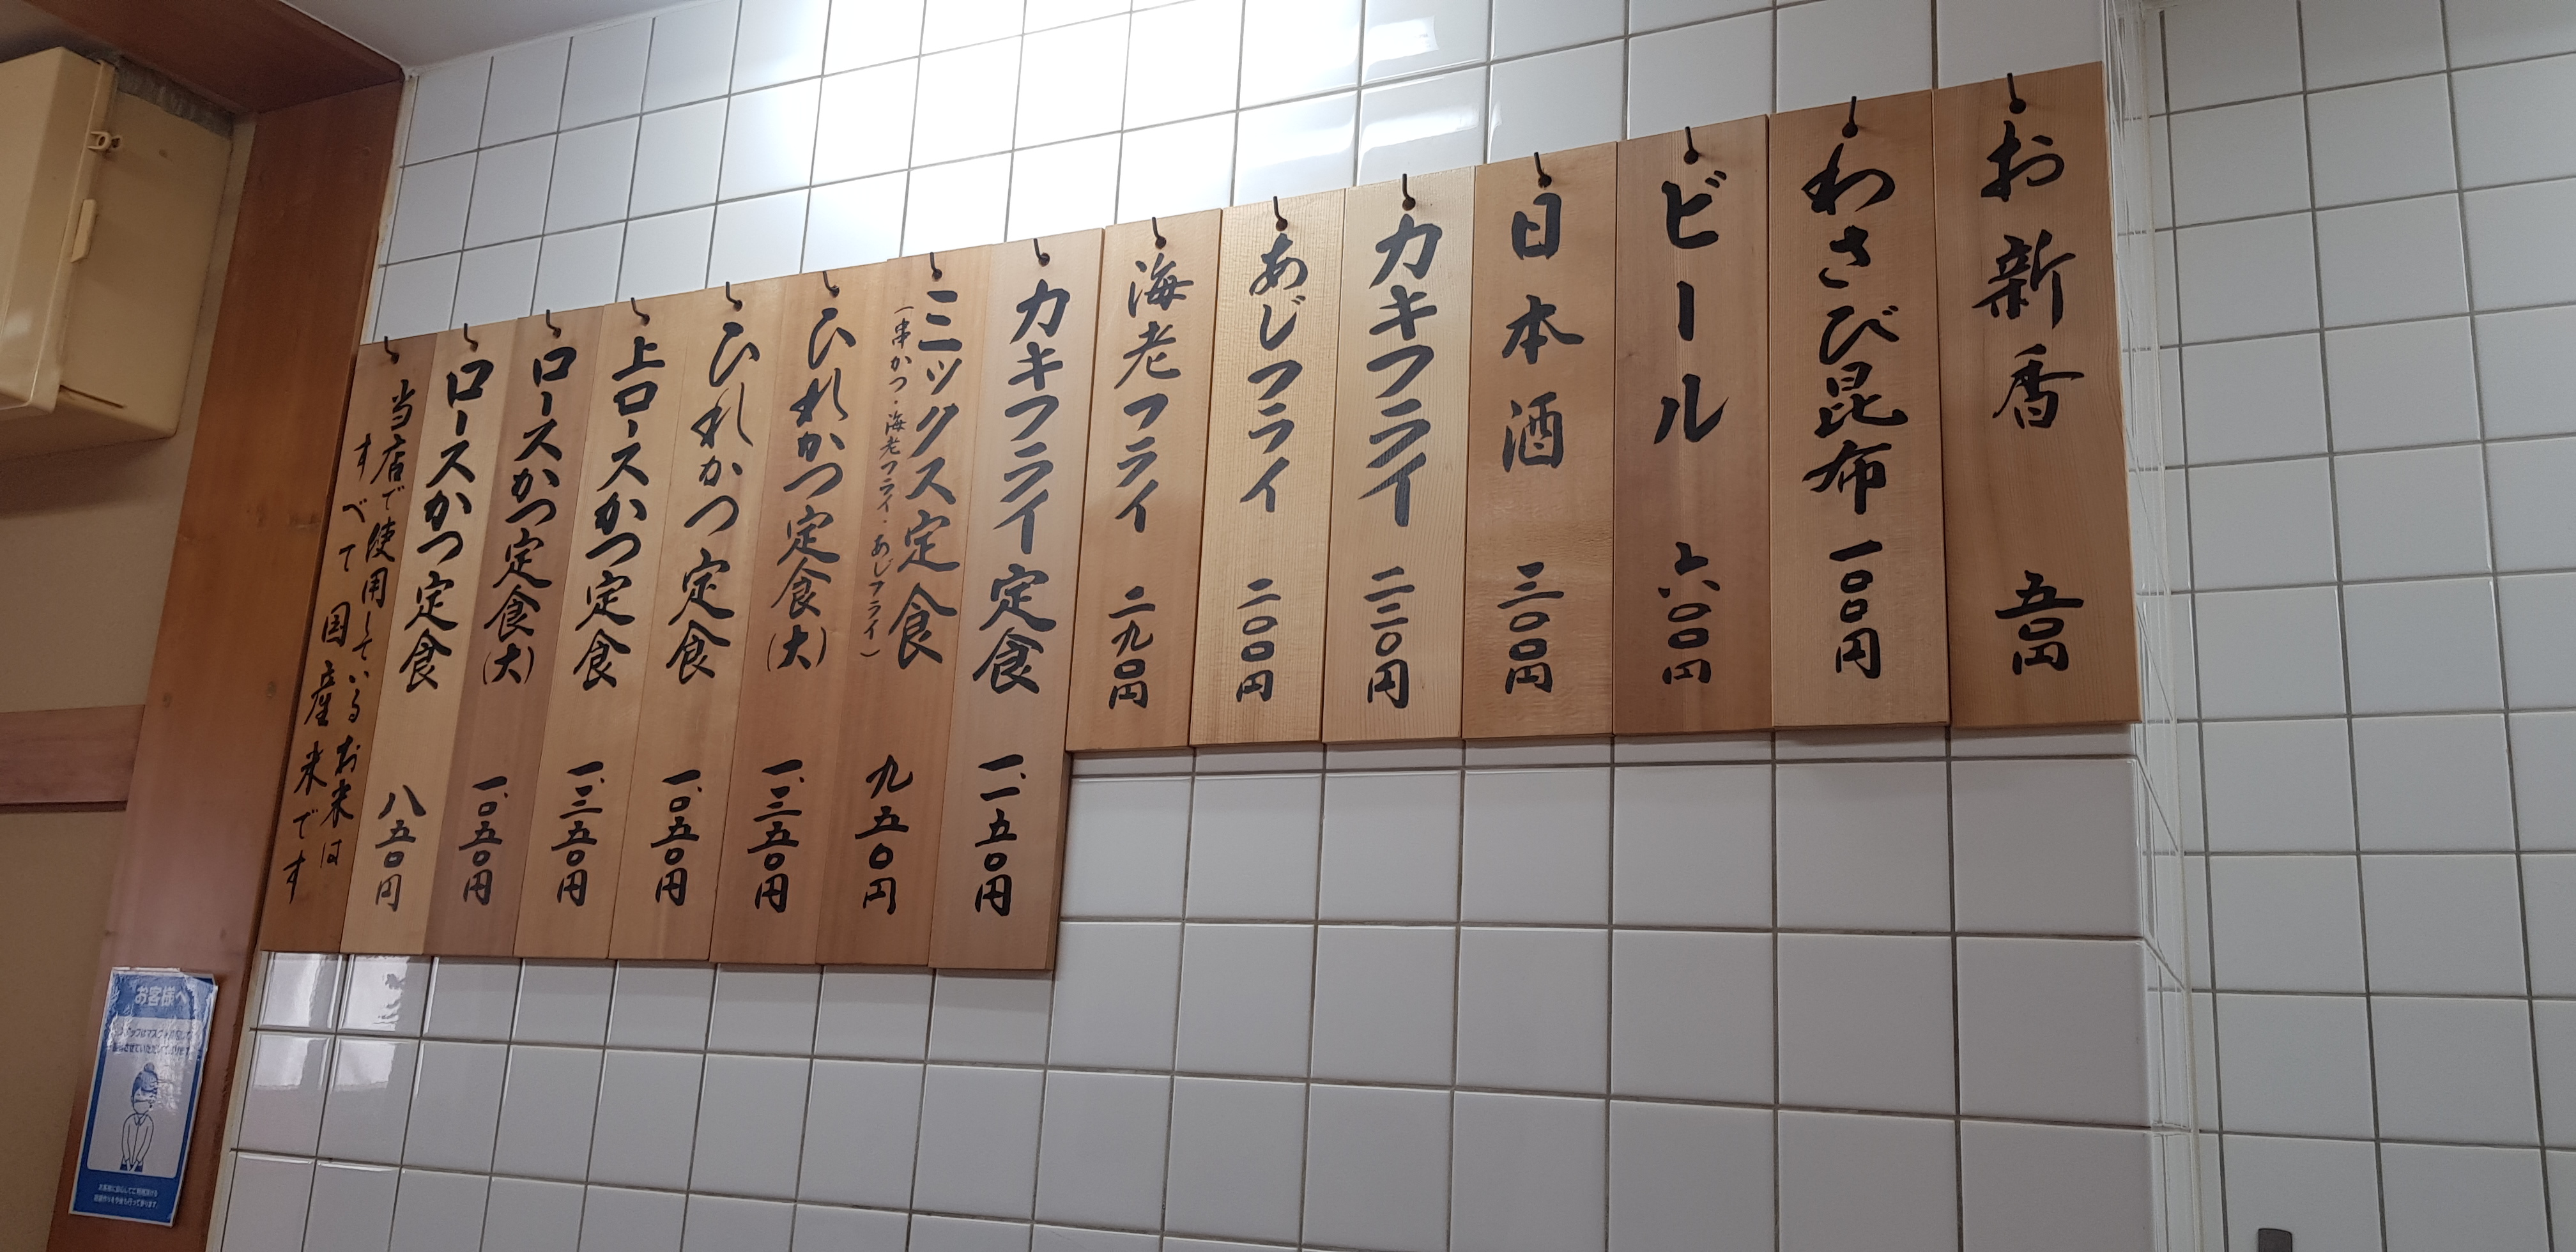 お新香 五〇円
わさび昆布 一〇〇円
ビール 六〇〇円
日本酒 三〇〇円
カキフライ 二二〇円
あじフライ 二〇〇円
海老フライ 二九〇円
カキフライ定食 一、一五〇円
ミックス定食 九五〇円
(串かつ・海老フライ・あじフライ)
ひれかつ定食(大) 一、三五〇円
ひれかつ定食 一、〇五〇円
上ロースかつ定食 一、三五〇円
ロースかつ定食(大) 一、〇五〇円
ロースかつ定食 八五〇円
当店で使用しているお米は
すべて国産米です
お客様へ